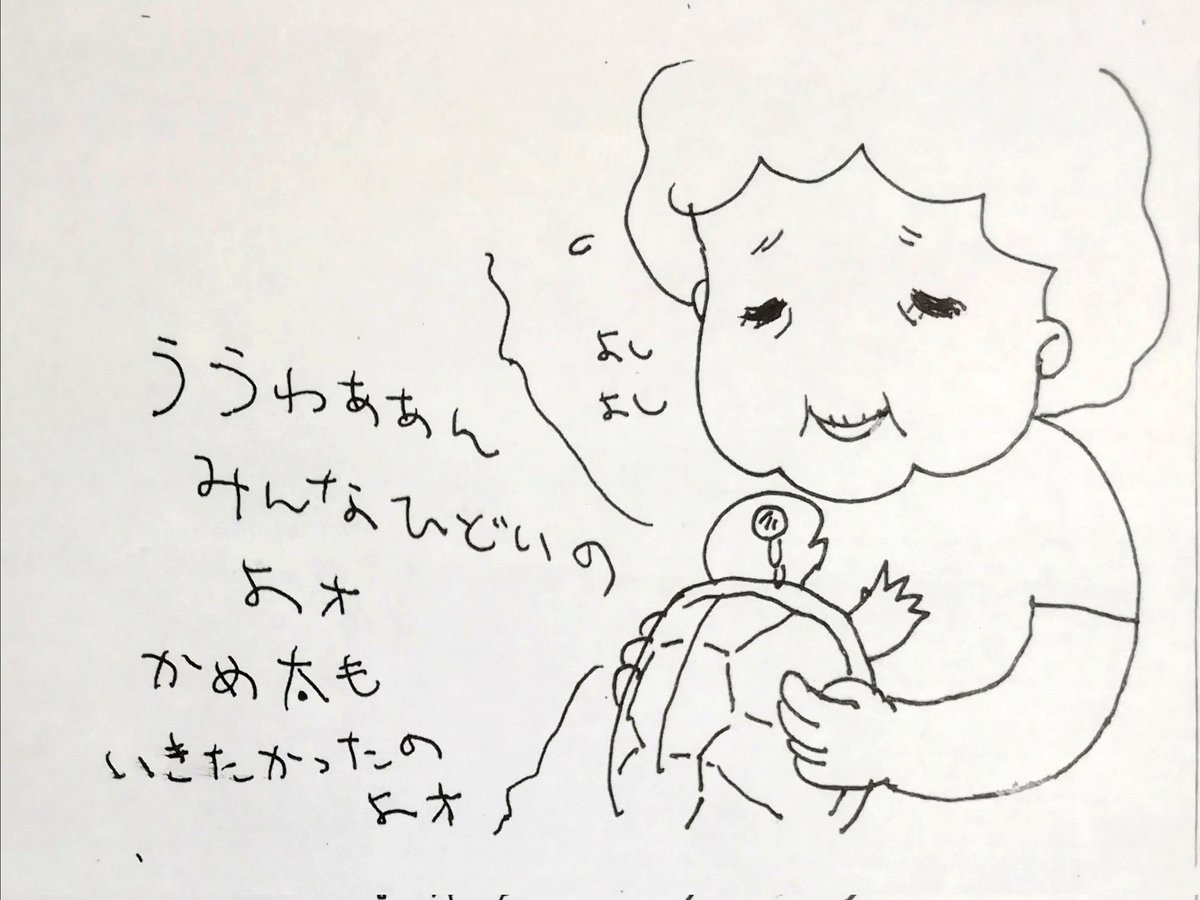 ううわぁぁん
みんなひどいの
よォ
かめ太も
いきたかったの
よォ
よし
よし